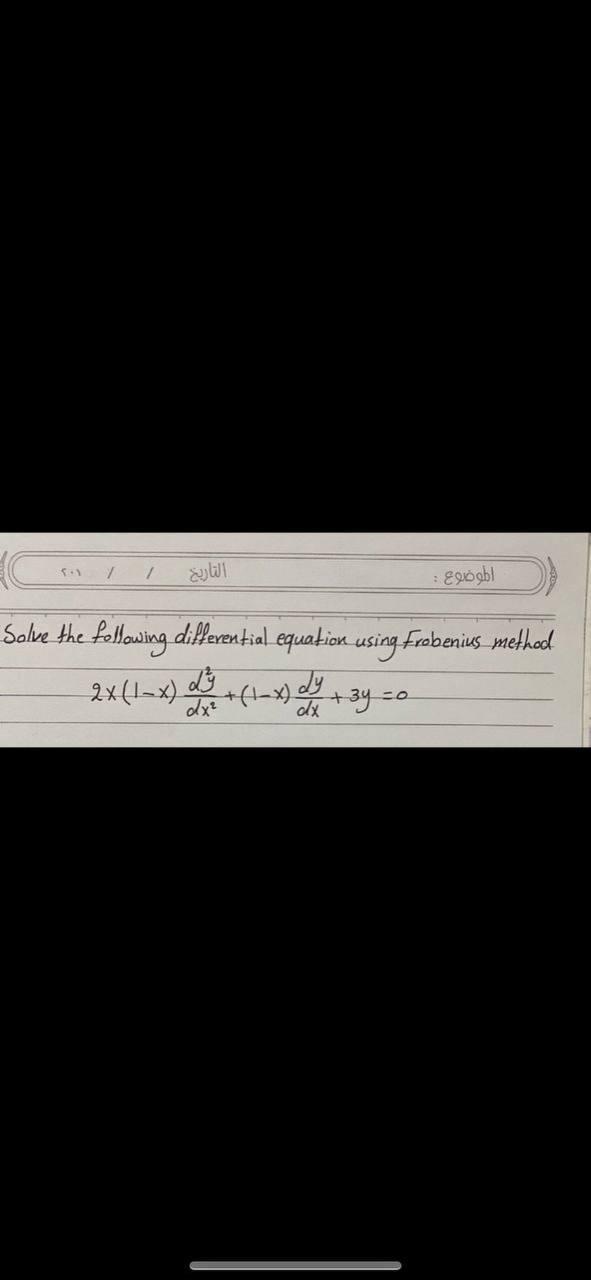 الموضوع : التاريخ / / ٢٠١
Solve the following differential equation using Frobenius method
2x(1-x) d²y/dx² + (1-x) dy/dx + 3y = 0